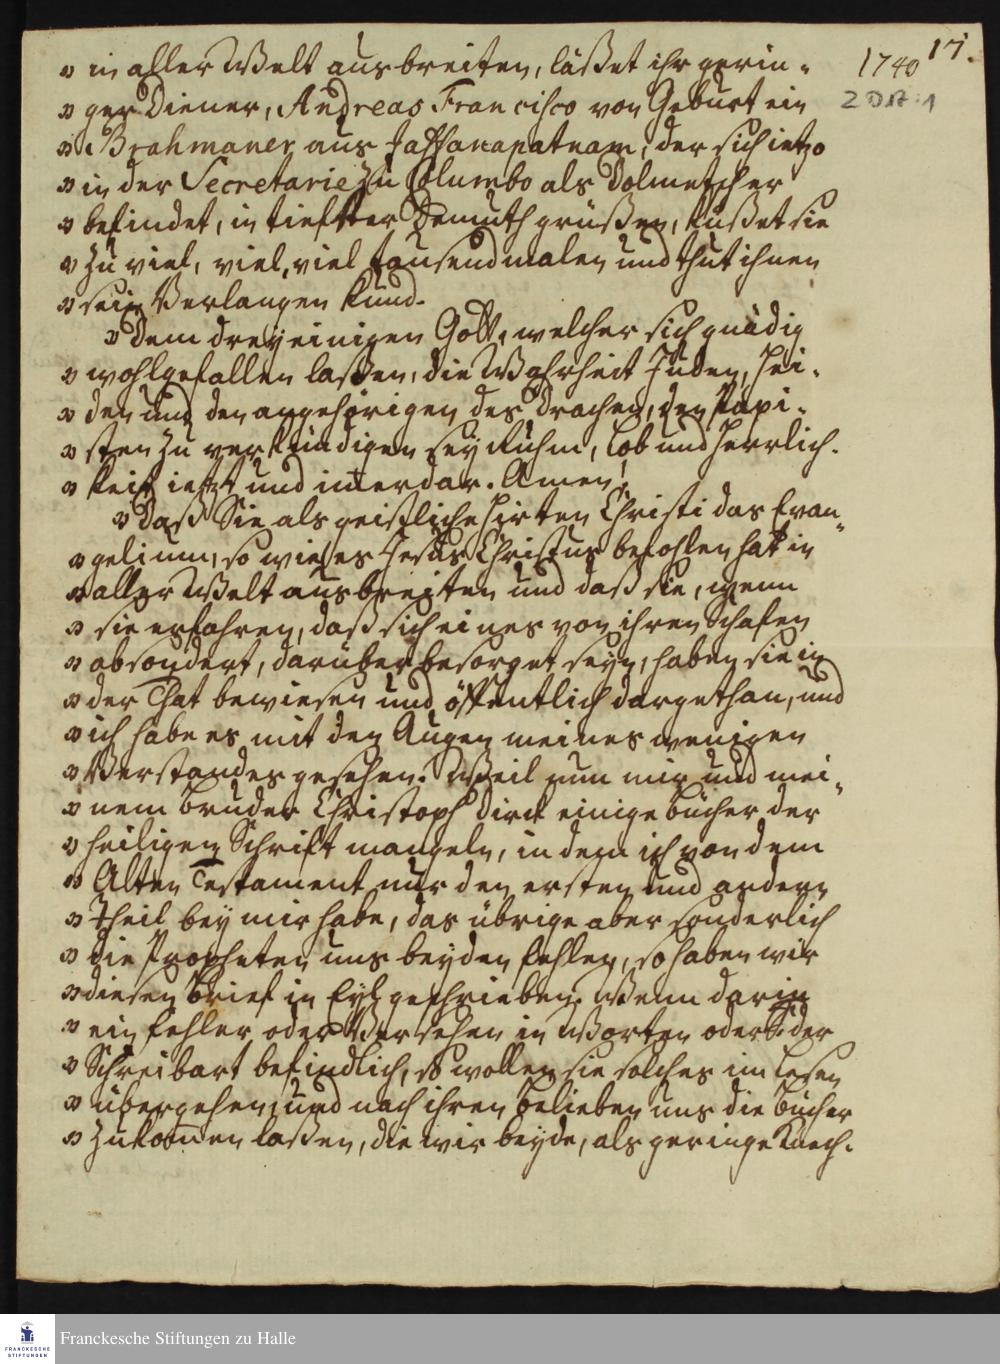 17.
1740
2 DA: 1
» in aller Welt ausbreiten, läßet ihr gerin-
» ger Diener, Andreas Francisco von Geburt ein
» Brahmaner aus Jaffanapatnam, der sich ietzo
» in der Secretarie zu Columbo als Dolmetscher
» befindet, in tiefster Demuth grüßen, küßet sie
» zu viel, viel, viel tausendmalen und thut ihnen
» sein Verlangen kund.
» Dem dreyeinigen Gott, welcher sich gnädig
» wohlgefallen laßen, die Wahrheit Juden, Hei-
» den und den angehörigen des Drachen, den Papi-
» sten zu verkündigen sey Ruhm, Lob und Herrlich-
» keit ietzt und im̄erdar. Amen!
» Daß Sie als geistliche Hirten Christi das Evan-
» gelium, so wie es Jesus Christus befohlen hat in
» aller Welt ausbreiten und daß sie, wenn
» sie erfahren, daß sich eines von ihren Schafen
» absondert, darüber besorget seyn, haben sie in
» der That bewiesen und öffentlich dargethan, und
» ich habe es mit den Augen meines wenigen
» Verstandes gesehen. Weil nun mir und mei-
» nem Bruder Christoph Dirck einige Bücher der
» heiligen Schrift mangeln, in dem ich von dem
» Alten Testament nur den ersten und andern
» Theil bey mir habe, das übrige aber sonderlich
» die Propheten uns beyden fehlen, so haben wir
» diesen Brief in Eyl geschrieben. Wenn darin
» ein Fehler oder Versehen in Worten oder der
» Schreibart befindlich, so wollen sie solches im Lesen
» übergehen, und nach ihren Belieben uns die Bücher
» zukom̄en laßen, die wir beyde, als geringe Knech-
FRANCKESCHE STIFTUNGEN
Franckesche Stiftungen zu Halle